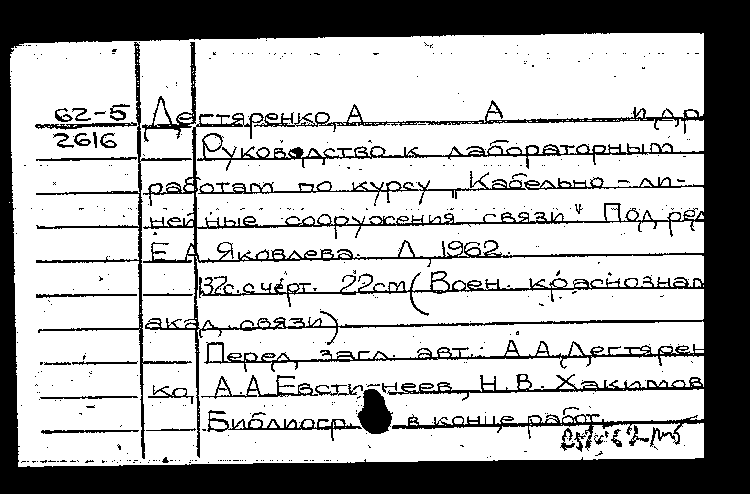 62-5 Дегтяренко, А А и др
2616 Руководство к лабораторным
работам по курсу „Кабельно-ли-
нейные сооружения связи" Под ред
Е А Яковлева. Л, 1962.
132с. с черт. 22см (Воен. краснознам
акад. связи)
Перед загл. авт.: А.А. Дегтярен-
ко, А.А Евстигнеев, Н.В. Хакимов
Библиогр. в конце работ.